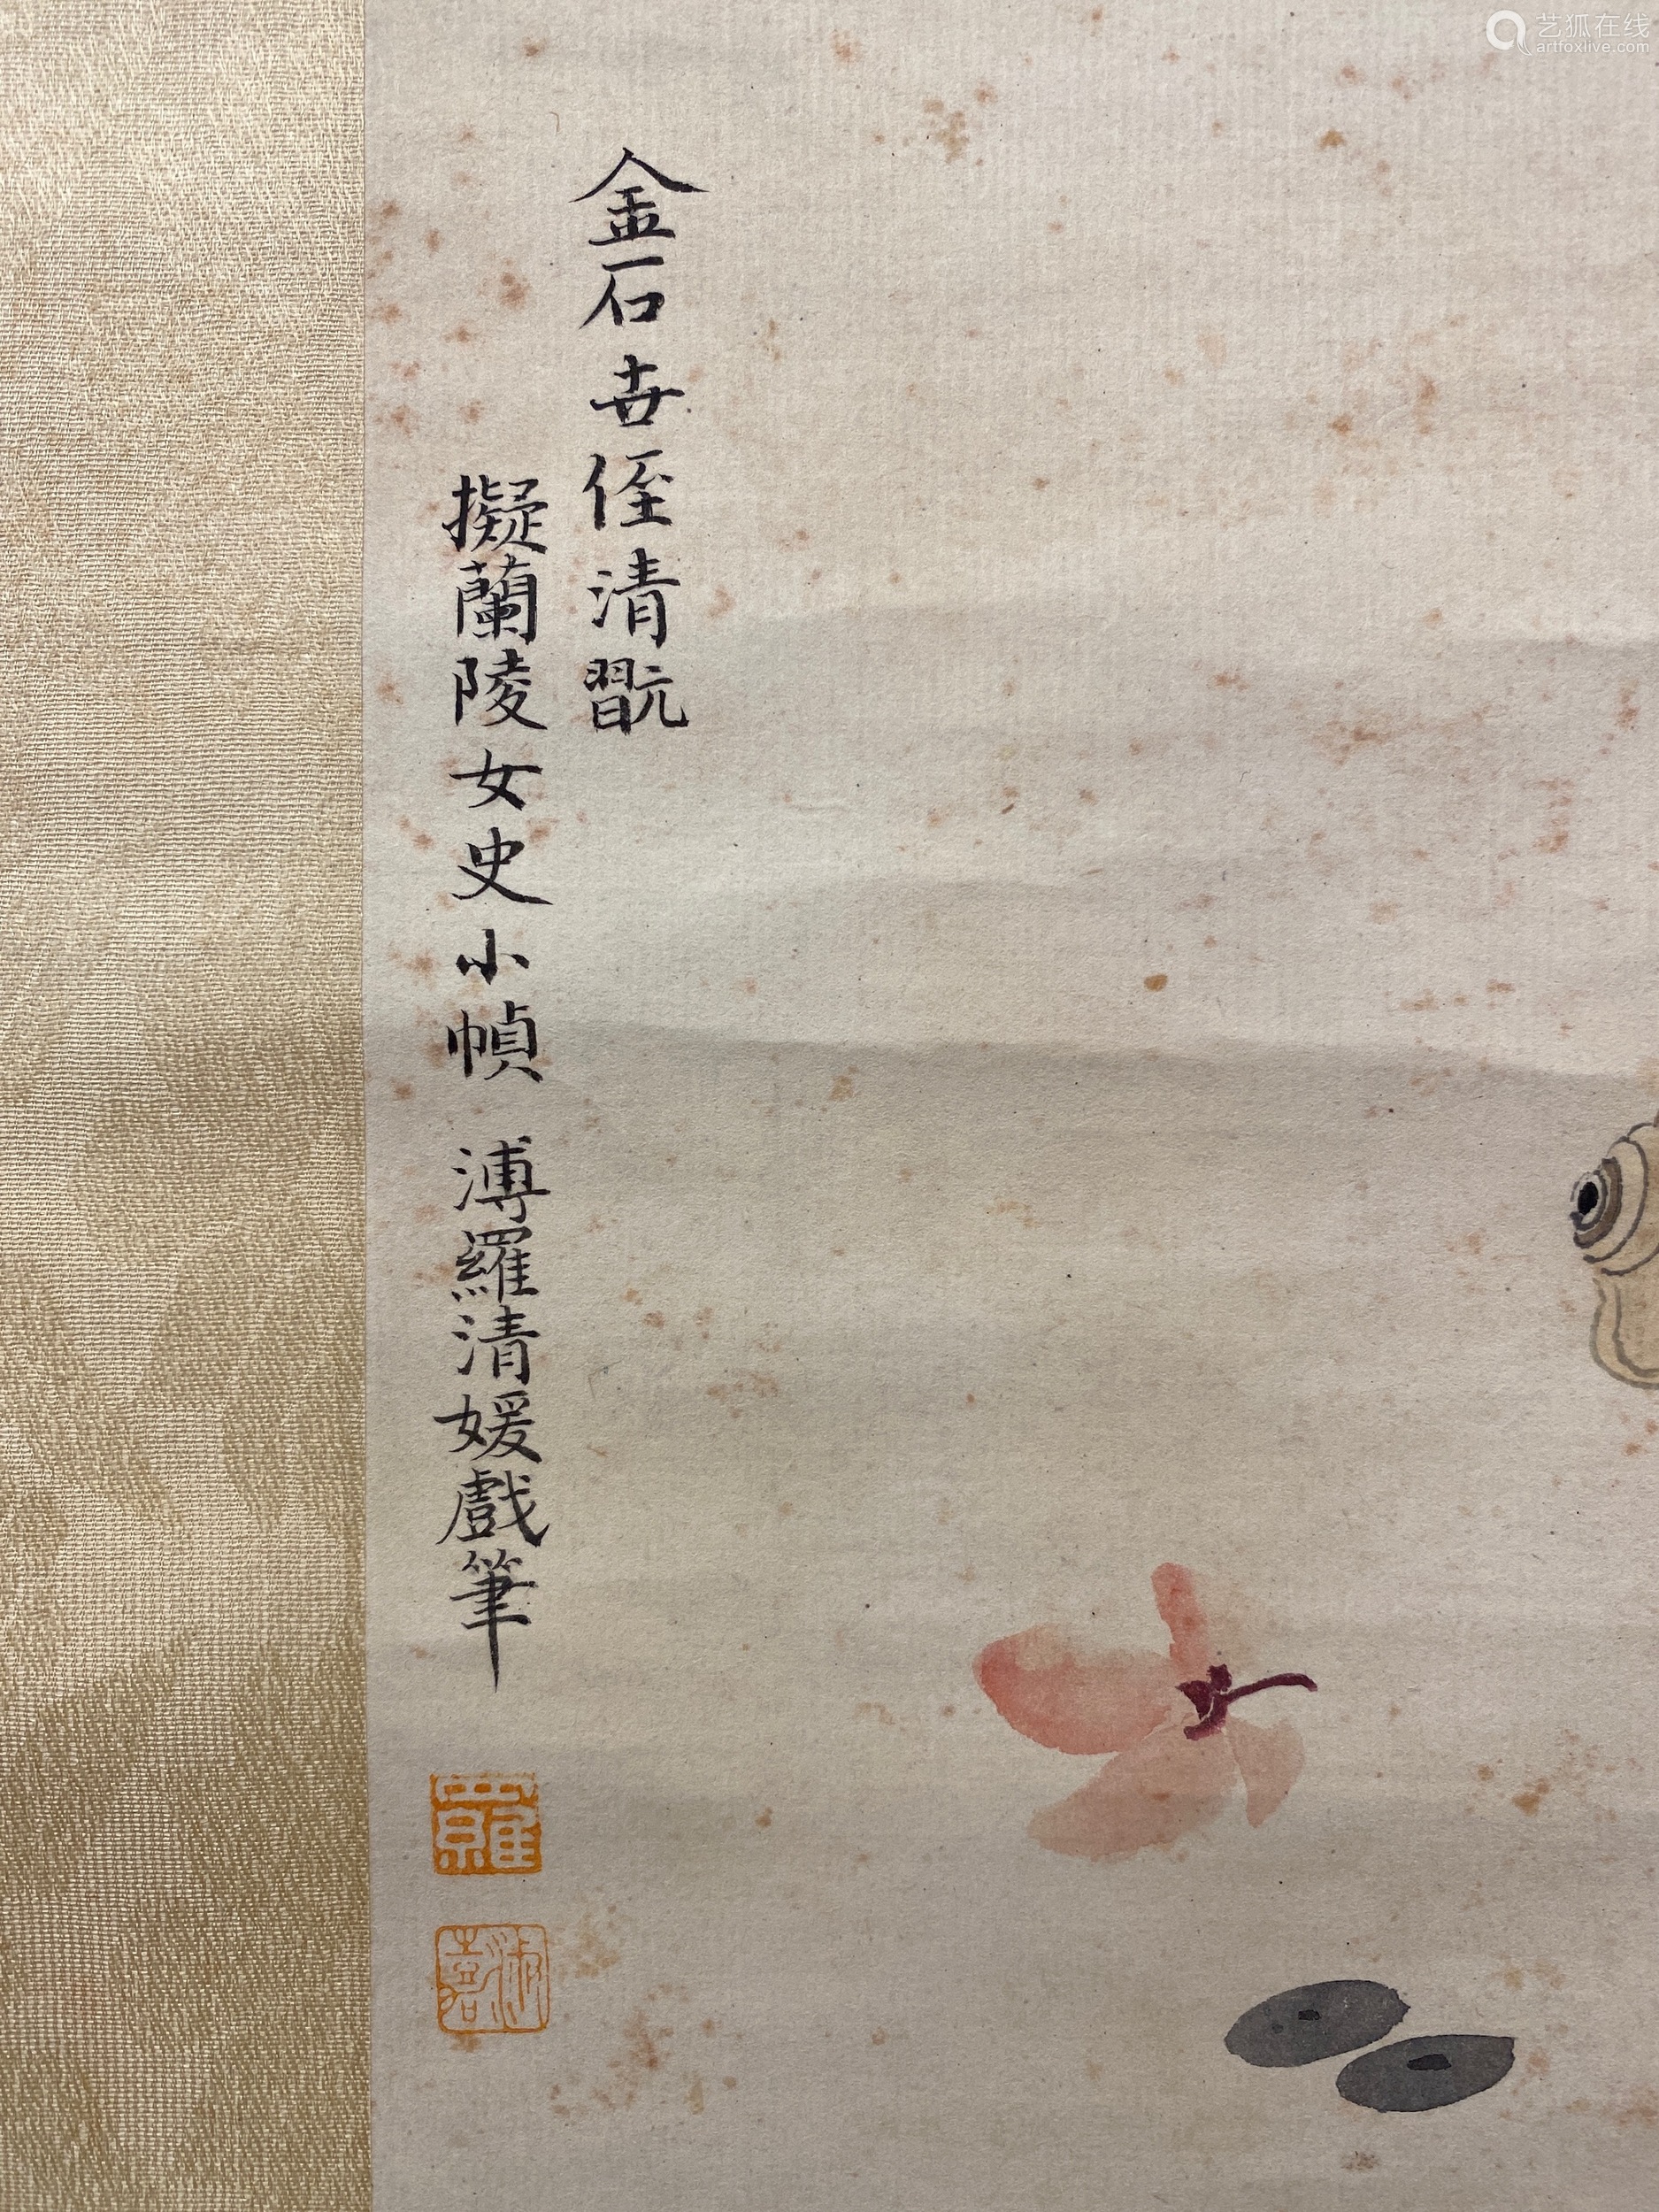 金石世侄清翫
擬蘭陵女史小幀 溥羅清媛戲筆
羅
淑嘉
艺狐在线
artfoxlive.com